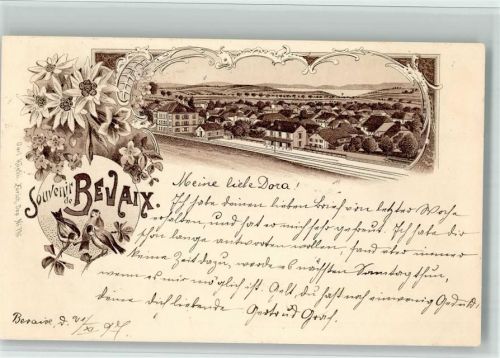 Souvenir de
BEVAIX.
Meine liebe Dora!
Ich habe deinen lieben Brief von letzter Woche
erhalten, und hat er mich sehr gefreut. Ich habe dir
schon lange antworten wollen, fand aber immer
keine Zeit dazu, werde es nächsten Samstag thun,
wenn es mir möglich ist. Gelt, du hast noch ein wenig Geduld?
deine dich liebende Gertrud Graf.
Bevaix, d. XI 97.